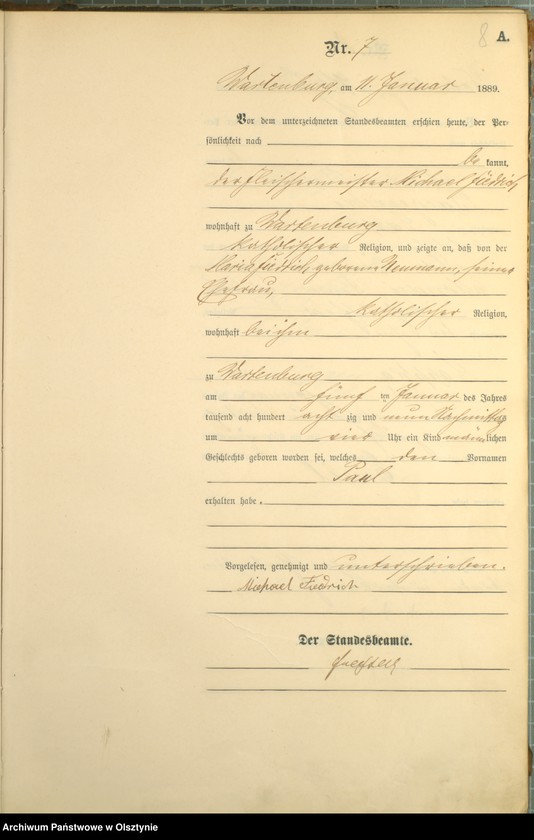 8 A.
Nr. 7
Wartenburg, am 11. Januar 1889.
Vor dem unterzeichneten Standesbeamten erschien heute, der Per-
sönlichkeit nach
be kannt,
der Fleischermeister Michael Fiedrich,
wohnhaft zu Wartenburg
katholischer Religion, und zeigte an, daß von der
Maria Fiedrich, geborenen Neumann, seiner
Ehefrau,
katholischer Religion,
wohnhaft bei ihm
zu Wartenburg
am fünf ten Januar des Jahres
tausend acht hundert acht zig und neun Nachmittags
um vier Uhr ein Kind männlichen
Geschlechts geboren worden sei, welches den Vornamen
Paul
erhalten habe.
Vorgelesen, genehmigt und unterschrieben.
Michael Fiedrich
Der Standesbeamte.
Archiwum Państwowe w Olsztynie